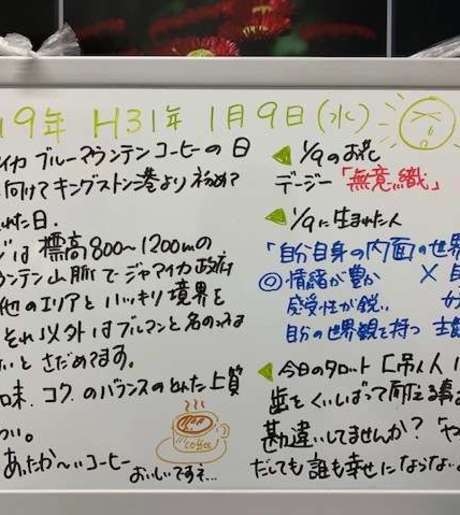 19年 H31年 1月9日(水)
イカ ブルーマウンテンコーヒーの日
向けてキングストン港より初めて
れた日.
ジは標高800〜1200mの
ウンテン山脈でジャマイカ政府
他のエリアとハッキリ境界を
それ以外はブルマンと名のっては
いとさだめてます。
口味、コクのバランスのとれた上質
あったか〜いコーヒー
おいしいですネ…
coffee
◀ 1/9のお花
デージー「無意織」
◀ 1/9に生まれた人
「自分自身の内面の世界
◎情緒が豊か
感受性が鋭い
自分の世界観を持つ
×
◀ 今日のタロット[吊人]
歯をくいしばって耐える事
勘違いしてませんか?「や
だしても誰も幸せにならない